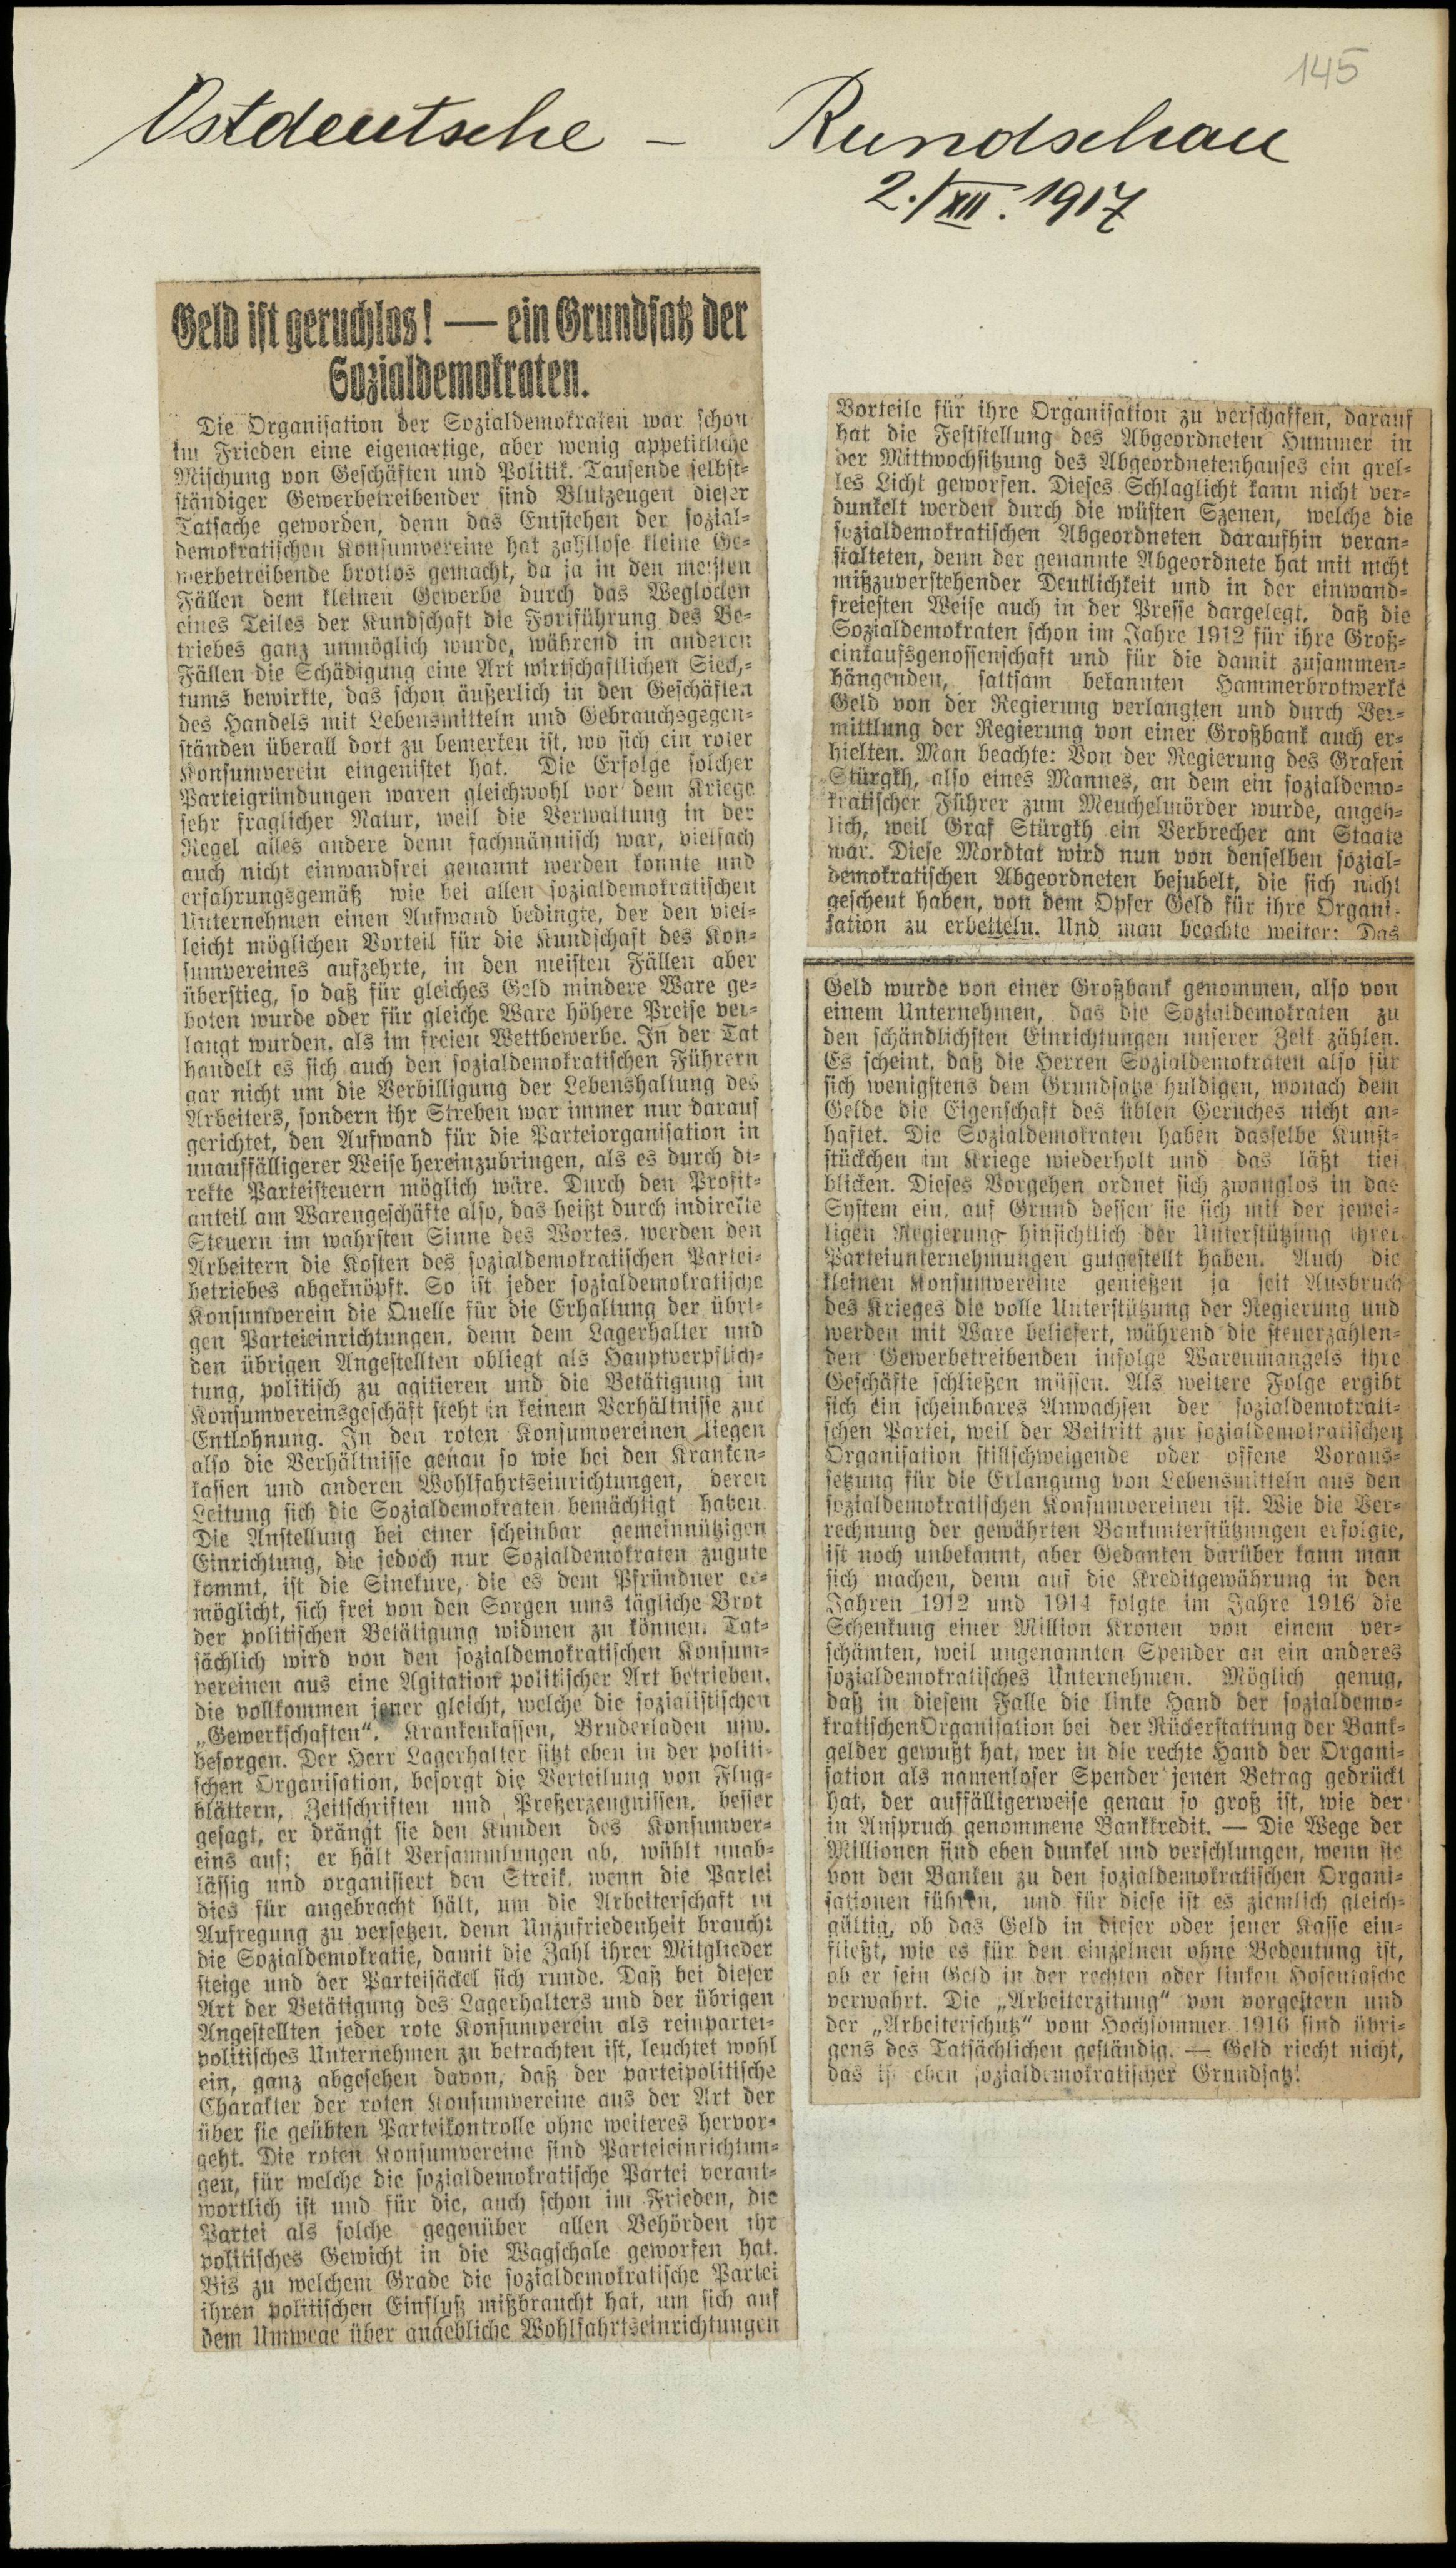 145
Ostdeutsche – Rundschau
2./XII. 1917
Geld ist geruchlos! — ein Grundsatz der
Sozialdemokraten.
Die Organisation der Sozialdemokraten war schon
im Frieden eine eigenartige, aber wenig appetitliche
Mischung von Geschäften und Politik. Tausende selbst-
ständiger Gewerbetreibender sind Blutzeugen dieser
Tatsache geworden, denn das Entstehen der sozial-
demokratischen Konsumvereine hat zahllose kleine Ge-
werbetreibende brotlos gemacht, da ja in den meisten
Fällen dem kleinen Gewerbe durch das Weglocken
eines Teiles der Kundschaft die Fortführung des Be-
triebes ganz unmöglich wurde, während in anderen
Fällen die Schädigung eine Art wirtschaftlichen Siech-
tums bewirkte, das schon äußerlich in den Geschäften
des Handels mit Lebensmitteln und Gebrauchsgegen-
ständen überall dort zu bemerken ist, wo sich ein roter
Konsumverein eingenistet hat. Die Erfolge solcher
Parteigründungen waren gleichwohl vor dem Kriege
sehr fraglicher Natur, weil die Verwaltung in der
Regel alles andere denn fachmännisch war, vielfach
auch nicht einwandfrei genannt werden konnte und
erfahrungsgemäß wie bei allen sozialdemokratischen
Unternehmen einen Aufwand bedingte, der den viel-
leicht möglichen Vorteil für die Kundschaft des Kon-
sumvereines aufzehrte, in den meisten Fällen aber
überstieg, so daß für gleiches Geld mindere Ware ge-
boten wurde oder für gleiche Ware höhere Preise ver-
langt wurden, als im freien Wettbewerbe. In der Tat
handelt es sich auch den sozialdemokratischen Führern
gar nicht um die Verbilligung der Lebenshaltung des
Arbeiters, sondern ihr Streben war immer nur darauf
gerichtet, den Aufwand für die Parteiorganisation in
unauffälligerer Weise hereinzubringen, als es durch di-
rekte Parteisteuern möglich wäre. Durch den Profit-
anteil am Warengeschäfte also, das heißt durch indirekte
Steuern im wahrsten Sinne des Wortes, werden den
Arbeitern die Kosten des sozialdemokratischen Partei-
betriebes abgeknöpft. So ist jeder sozialdemokratische
Konsumverein die Quelle für die Erhaltung der übri-
gen Parteieinrichtungen, denn dem Lagerhalter und
den übrigen Angestellten obliegt als Hauptverpflich-
tung, politisch zu agitieren und die Betätigung im
Konsumvereinsgeschäft steht in keinem Verhältnisse zur
Entlohnung. In den roten Konsumvereinen liegen
also die Verhältnisse genau so wie bei den Kranken-
kassen und anderen Wohlfahrtseinrichtungen, deren
Leitung sich die Sozialdemokraten bemächtigt haben.
Die Anstellung bei einer scheinbar gemeinnützigen
Einrichtung, die jedoch nur Sozialdemokraten zugute
kommt, ist die Sinekure, die es dem Pfründner er-
möglicht, sich frei von den Sorgen ums tägliche Brot
der politischen Betätigung widmen zu können. Tat-
sächlich wird von den sozialdemokratischen Konsum-
vereinen aus eine Agitation politischer Art betrieben,
die vollkommen jener gleicht, welche die sozialistischen
„Gewerkschaften“, Krankenkassen, Bruderladen usw.
besorgen. Der Herr Lagerhalter sitzt eben in der politi-
schen Organisation, besorgt die Verteilung von Flug-
blättern, Zeitschriften und Preßerzeugnissen, besser
gesagt, er drängt sie den Kunden des Konsumver-
eins auf; er hält Versammlungen ab, wühlt unab-
lässig und organisiert den Streik, wenn die Partei
dies für angebracht hält, um die Arbeiterschaft in
Aufregung zu versetzen, denn Unzufriedenheit braucht
die Sozialdemokratie, damit die Zahl ihrer Mitglieder
steige und der Parteisäckel sich runde. Daß bei dieser
Art der Betätigung des Lagerhalters und der übrigen
Angestellten jeder rote Konsumverein als reinpartei-
politisches Unternehmen zu betrachten ist, leuchtet wohl
ein, ganz abgesehen davon, daß der parteipolitische
Charakter der roten Konsumvereine aus der Art der
über sie geübten Parteikontrolle ohne weiteres hervor-
geht. Die roten Konsumvereine sind Parteieinrichtun-
gen, für welche die sozialdemokratische Partei verant-
wortlich ist und für die, auch schon im Frieden, die
Partei als solche gegenüber allen Behörden ihr
politisches Gewicht in die Wagschale geworfen hat.
Bis zu welchem Grade die sozialdemokratische Partei
ihren politischen Einfluß mißbraucht hat, um sich auf
dem Umwege über angebliche Wohlfahrtseinrichtungen
Vorteile für ihre Organisation zu verschaffen, darauf
hat die Feststellung des Abgeordneten Hummer in
der Mittwochsitzung des Abgeordnetenhauses ein grel-
les Licht geworfen. Dieses Schlaglicht kann nicht ver-
dunkelt werden durch die wüsten Szenen, welche die
sozialdemokratischen Abgeordneten daraufhin veran-
stalteten, denn der genannte Abgeordnete hat mit nicht
mißzuverstehender Deutlichkeit und in der einwand-
freiesten Weise auch in der Presse dargelegt, daß die
Sozialdemokraten schon im Jahre 1912 für ihre Groß-
einkaufsgenossenschaft und für die damit zusammen-
hängenden, sattsam bekannten Hammerbrotwerke
Geld von der Regierung verlangten und durch Ver-
mittlung der Regierung von einer Großbank auch er-
hielten. Man beachte: Von der Regierung des Grafen
Stürgkh, also eines Mannes, an dem ein sozialdemo-
kratischer Führer zum Meuchelmörder wurde, angeb-
lich, weil Graf Stürgkh ein Verbrecher am Staate
war. Diese Mordtat wird nun von denselben sozial-
demokratischen Abgeordneten bejubelt, die sich nicht
gescheut haben, von dem Opfer Geld für ihre Organi-
sation zu erbetteln. Und man beachte weiter: Das
Geld wurde von einer Großbank genommen, also von
einem Unternehmen, das die Sozialdemokraten zu
den schändlichsten Einrichtungen unserer Zeit zählen.
Es scheint, daß die Herren Sozialdemokraten also für
sich wenigstens dem Grundsatze huldigen, wonach dem
Gelde die Eigenschaft des üblen Geruches nicht an-
haftet. Die Sozialdemokraten haben dasselbe Kunst-
stückchen im Kriege wiederholt und das läßt tief
blicken. Dieses Vorgehen ordnet sich zwanglos in das
System ein, auf Grund dessen sie sich mit der jewei-
ligen Regierung hinsichtlich der Unterstützung ihrer
Parteiunternehmungen gutgestellt haben. Auch die
kleinen Konsumvereine genießen ja seit Ausbruch
des Krieges die volle Unterstützung der Regierung und
werden mit Ware beliefert, während die steuerzahlen-
den Gewerbetreibenden infolge Warenmangels ihre
Geschäfte schließen müssen. Als weitere Folge ergibt
sich ein scheinbares Anwachsen der sozialdemokrati-
schen Partei, weil der Beitritt zur sozialdemokratischen
Organisation stillschweigende oder offene Voraus-
setzung für die Erlangung von Lebensmitteln aus den
sozialdemokratischen Konsumvereinen ist. Wie die Ver-
rechnung der gewährten Bankunterstützungen erfolgte,
ist noch unbekannt, aber Gedanken darüber kann man
sich machen, denn auf die Kreditgewährung in den
Jahren 1912 und 1914 folgte im Jahre 1916 die
Schenkung einer Million Kronen von einem ver-
schämten, weil ungenannten Spender an ein anderes
sozialdemokratisches Unternehmen. Möglich genug,
daß in diesem Falle die linke Hand der sozialdemo-
kratischen Organisation bei der Rückerstattung der Bank-
gelder gewußt hat, wer in die rechte Hand der Organi-
sation als namenloser Spender jenen Betrag gedrückt
hat, der auffälligerweise genau so groß ist, wie der
in Anspruch genommene Bankkredit. — Die Wege der
Millionen sind eben dunkel und verschlungen, wenn sie
von den Banken zu den sozialdemokratischen Organi-
sationen führen, und für diese ist es ziemlich gleich-
gültig, ob das Geld in dieser oder jener Kasse ein-
fließt, wie es für den einzelnen ohne Bedeutung ist,
ob er sein Geld in der rechten oder linken Hosentasche
verwahrt. Die „Arbeiterzitung“ von vorgestern und
der „Arbeiterschutz“ vom Hochsommer 1916 sind übri-
gens des Tatsächlichen geständig. — Geld riecht nicht,
das ist eben sozialdemokratischer Grundsatz!